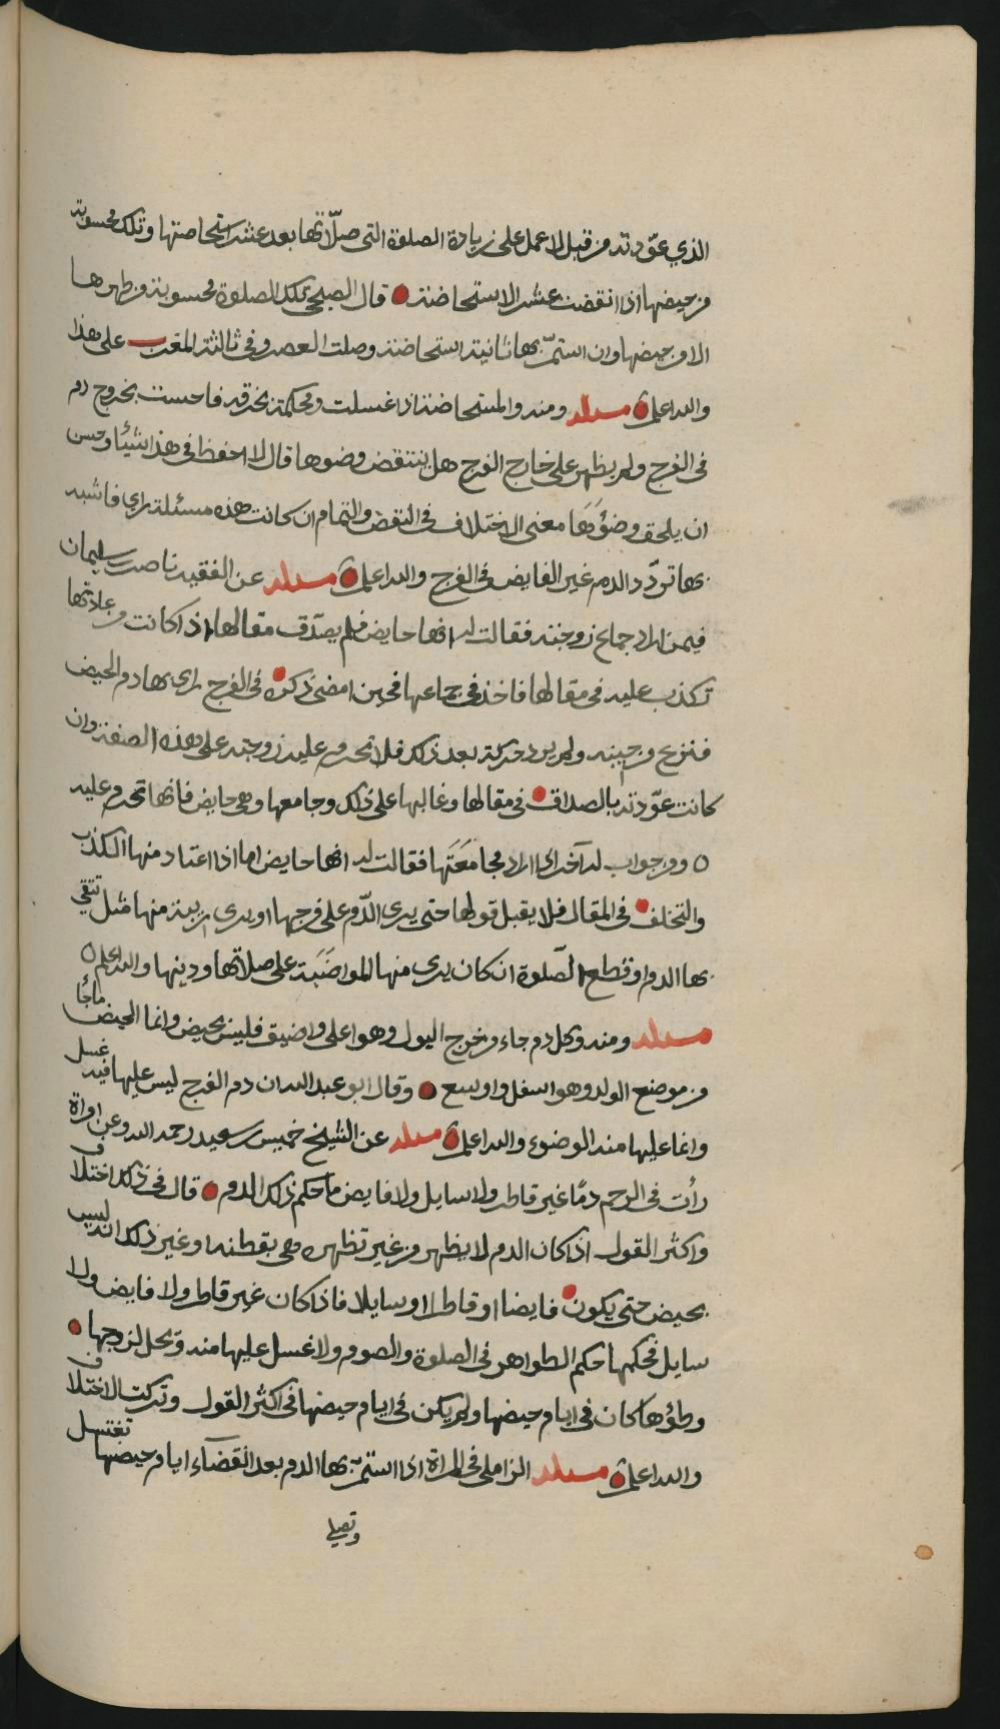 الذي عوّدته من قبل لا عمل على زيادة الصلوة التى صلّاتها بعد عشر استحاضتها وتلك محسوبة
من حيضها اذا انقضت عشر الاستحاضة قال الصبحي تلك الصلوة محسوبة من طهرها
الا من حيضها وان استمرّ بها ثانية استحاضة وصلت العصر وفى ثالثة المغرب على هذا
والله اعلم مسئلة ومنه والمستحاضة اذا غسلت ومحكمة بخرقة فاحست بخروج دم
فى الفرج ولم يظهر على خارج الفرج هل ينتقض وضوها قال لا احفظ فى هذا شيئا وحسن
ان يلحق وضؤها معنى الاختلاف فى النقض والتمام ان كانت هذه مسئلة براي فاشبه
بها تردّد الدم غير الفايض فى الفرج والله اعلم مسئلة عن الفقيه ناصر بن سليمان
فيمن اراد جماع زوجته فقالت له انها حايض فلم يصدّق مقالها اذا كانت من عادتها
تكذب عليه فى مقالها فاخذ فى جماعها فحين امضى ذكره فى الفرج راى بها دم الحيض
فنزع من حينه ولم يرد حركة بعد ذلك فلا تحرم عليه زوجته على هذه الصفة وان
كانت عوّدته بالصداق فى مقالها وغالبها على ذلك وجامعها وهى حايض فانها تحرم عليه
ومن جواب له آخر اذا اراد مجامعتها فقالت له انها حايض اما اذا اعتاد منها الكذب
والتخلف فى المقال فلا يقبل قولها حتى يرى الدّم على فرجها او يرى ريبة منها مثل تتقي
بها الدم او قطع الصّلوة ان كان يرى منها المواضبة على صلاتها ودينها والله اعلم
مسئلة ومنه وكل دم جاء من مخرج البول وهو اعلى واضيق فليس بحيض وانما الحيض ما جأ
من موضع الولد وهو اسفل واوسع وقال ابو عبد الله ان دم الفرج ليس عليها فيه غسل
وانما عليها منه الوضوء والله اعلم مسئلة عن الشيخ خميس بن سعيد رحمه الله وعن امراة
رأت فى الرحم دمّا غير قاطر ولا سايل ولا فايض ما حكم ذلك الدم قال فى ذلك اختلاف
واكثر القول اذا كان الدم لا يظهر من غير تظهره هى بقطنة او غير ذلك انه ليس
بحيض حتى يكون فايضا او قاطرا او سايلا فاذا كان غير قاطر ولا فايض ولا
سايل فحكمها حكم الطواهر فى الصلوة والصوم ولا غسل عليها منه ويحل لزوجها
وطؤها كان فى ايام حيضها ولم يكن فى ايام حيضها فى اكثر القول وتركت الاختلاف
والله اعلم مسئلة الزاملي فى المراة اذا استمرّ بها الدم بعد انقضاء ايام حيضها تغتسل
وتصلي